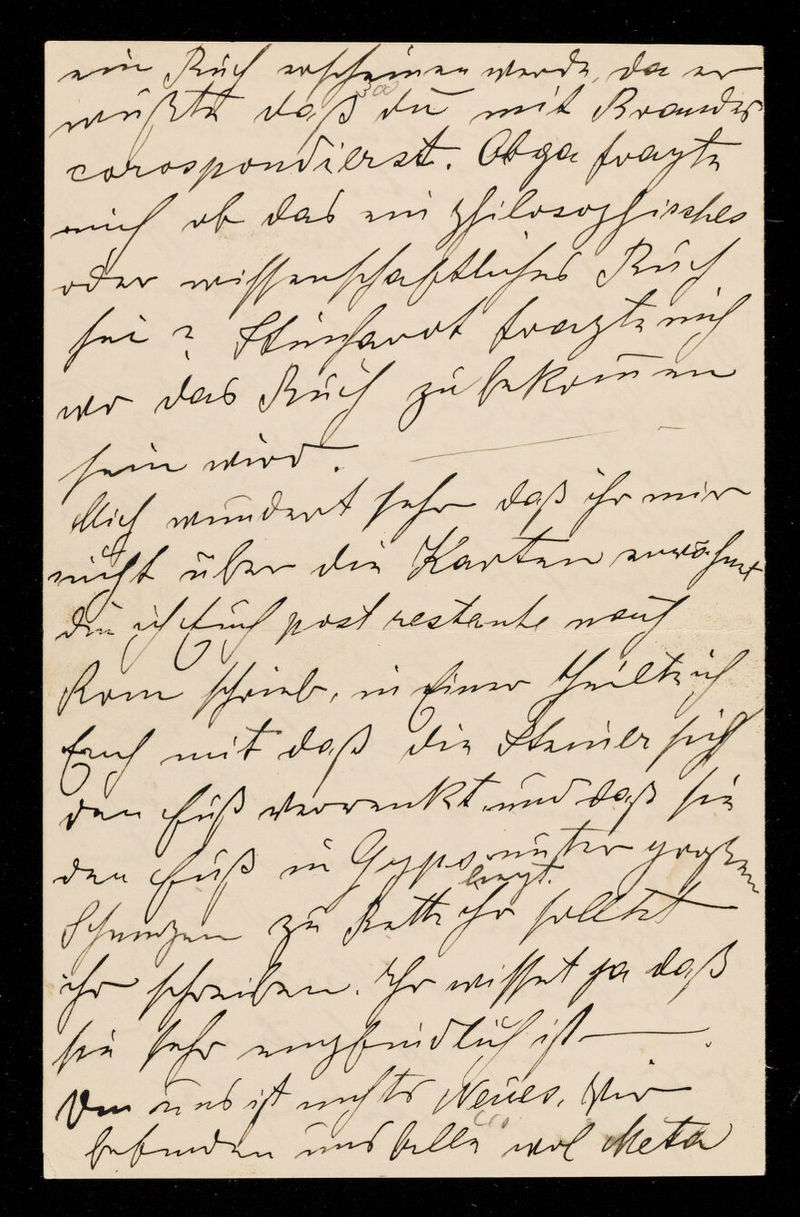 ein Buch erscheinen werde, da er
wußte daß du mit Brandes
corospondierst. Olga fragte
mich ob das ein philosophisches
oder wissenschaftliches Buch
sei? fragte mich
wo das Buch zu bekom̅en
sein wird.
Mich wundert sehr daß ihr mir
nicht über die Karten erwähnt
die ich Euch post restante nach
Rom schrieb, in Einer theilte ich
Euch mit daß die sich
den Fuß verrenkt und daß sie
den Fuß in Gyps unter großen
liegt.
Schmerzen zu Bette ihr solltet
ihr schreiben. Ihr wisset ja daß
sie sehr empfindlich ist.
Von uns ist nichts Neues. Wir
befinden uns alle wol Meta